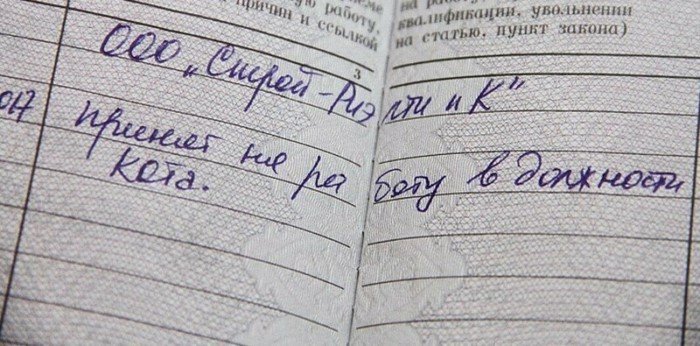 ную работу,
причин и ссылкой
квалификации, увольнении
на статью, пункт закона)
3
ООО „Строй-Риэлти и К"
017 принят на работу в должности
Кота.